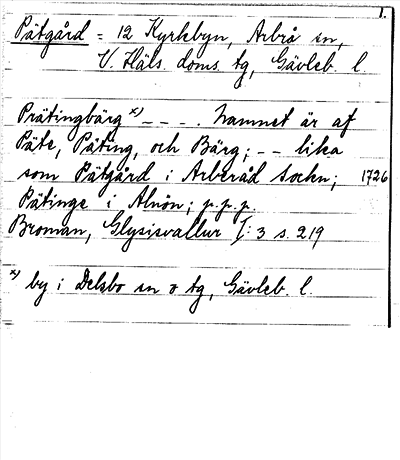 1.
Pätgård = 12 Kyrkbyn, Arbrå sn,
V. Häls. doms. tg, Gävleb. l.
Prätingbärg x) - - - . Namnet är af
Päte, Päting, och Bärg; - - lika
som Pätgård i Arberåd sochn; 1726
Pätinge i Alnön; p.p.p.
Broman, Glysisvallur I: 3 s. 219
x) by i Delsbo sn o tg, Gävleb. l.